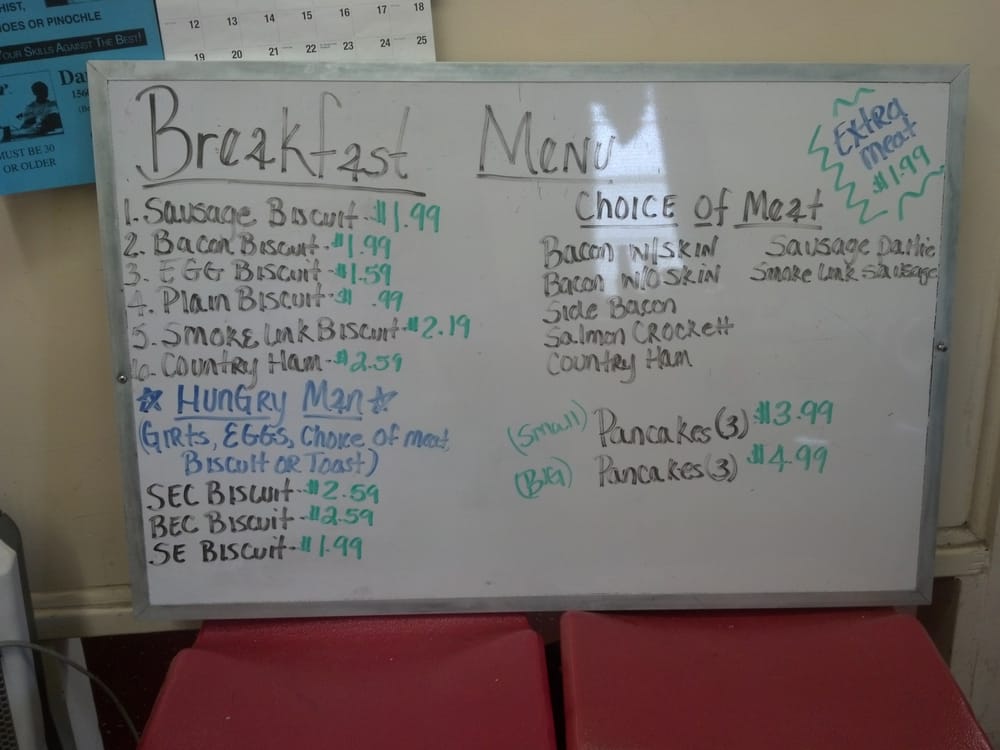 HIST,
OES OR PINOCHLE
YOUR SKILLS AGAINST THE BEST!
Da
156
MUST BE 30
OR OLDER
12 13 14 15 16 17 18
19 20 21 22 23 24 25
Breakfast Menu
Extra
meat
$1.99
1. Sausage Biscuit-$1.99
2. Bacon Biscuit-$1.99
3. EGG Biscuit-$1.59
4. Plain Biscuit-$ .99
5. Smoke Link Biscuit-$2.19
6. Country Ham-$2.59
Hungry Man
(Girts, EGGS, Choice of meat,
Biscuit OR Toast)
SEC Biscuit-$2.59
BEC Biscuit-$2.59
SE Biscuit-$1.99
Choice of Meat
Bacon W/SKIN Sausage Pattie
Bacon W/O SKIN Smoke Link Sausage
Side Bacon
Salmon Crockett
Country Ham
(Small) Pancakes (3) $3.99
(BIG) Pancakes (3) $4.99